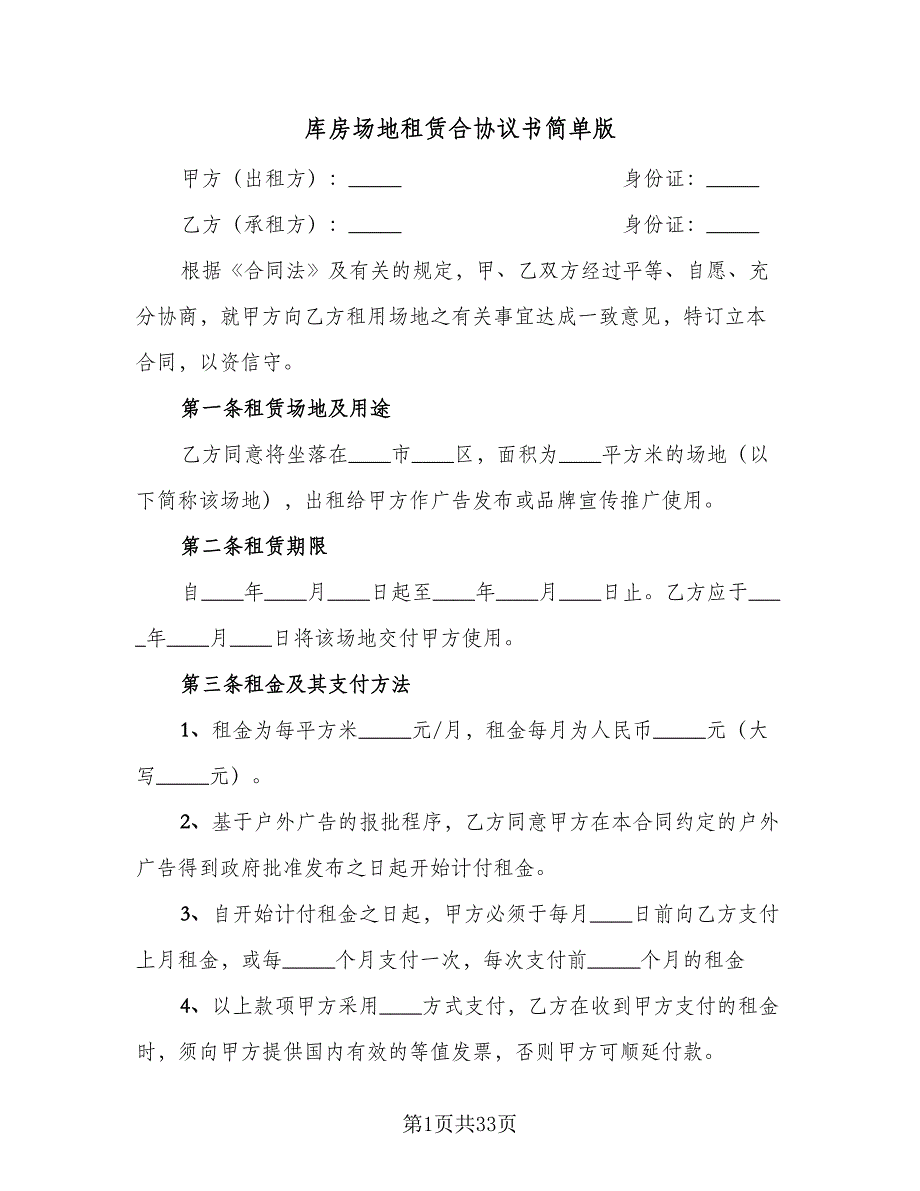 库房场地租赁合协议书简单版
甲方（出租方）：_____ 身份证：_____
乙方（承租方）：_____ 身份证：_____
根据《合同法》及有关的规定，甲、乙双方经过平等、自愿、充
分协商，就甲方向乙方租用场地之有关事宜达成一致意见，特订立本
合同，以资信守。
第一条租赁场地及用途
乙方同意将坐落在____市____区，面积为____平方米的场地（以
下简称该场地），出租给甲方作广告发布或品牌宣传推广使用。
第二条租赁期限
自____年____月____日起至____年____月____日止。乙方应于___
_年____月____日将该场地交付甲方使用。
第三条租金及其支付方法
1、租金为每平方米_____元/月，租金每月为人民币_____元（大
写_____元）。
2、基于户外广告的报批程序，乙方同意甲方在本合同约定的户外
广告得到政府批准发布之日起开始计付租金。
3、自开始计付租金之日起，甲方必须于每月____日前向乙方支付
上月租金，或每_____个月支付一次，每次支付前_____个月的租金
4、以上款项甲方采用____方式支付，乙方在收到甲方支付的租金
时，须向甲方提供国内有效的等值发票，否则甲方可顺延付款。
第1页共33页